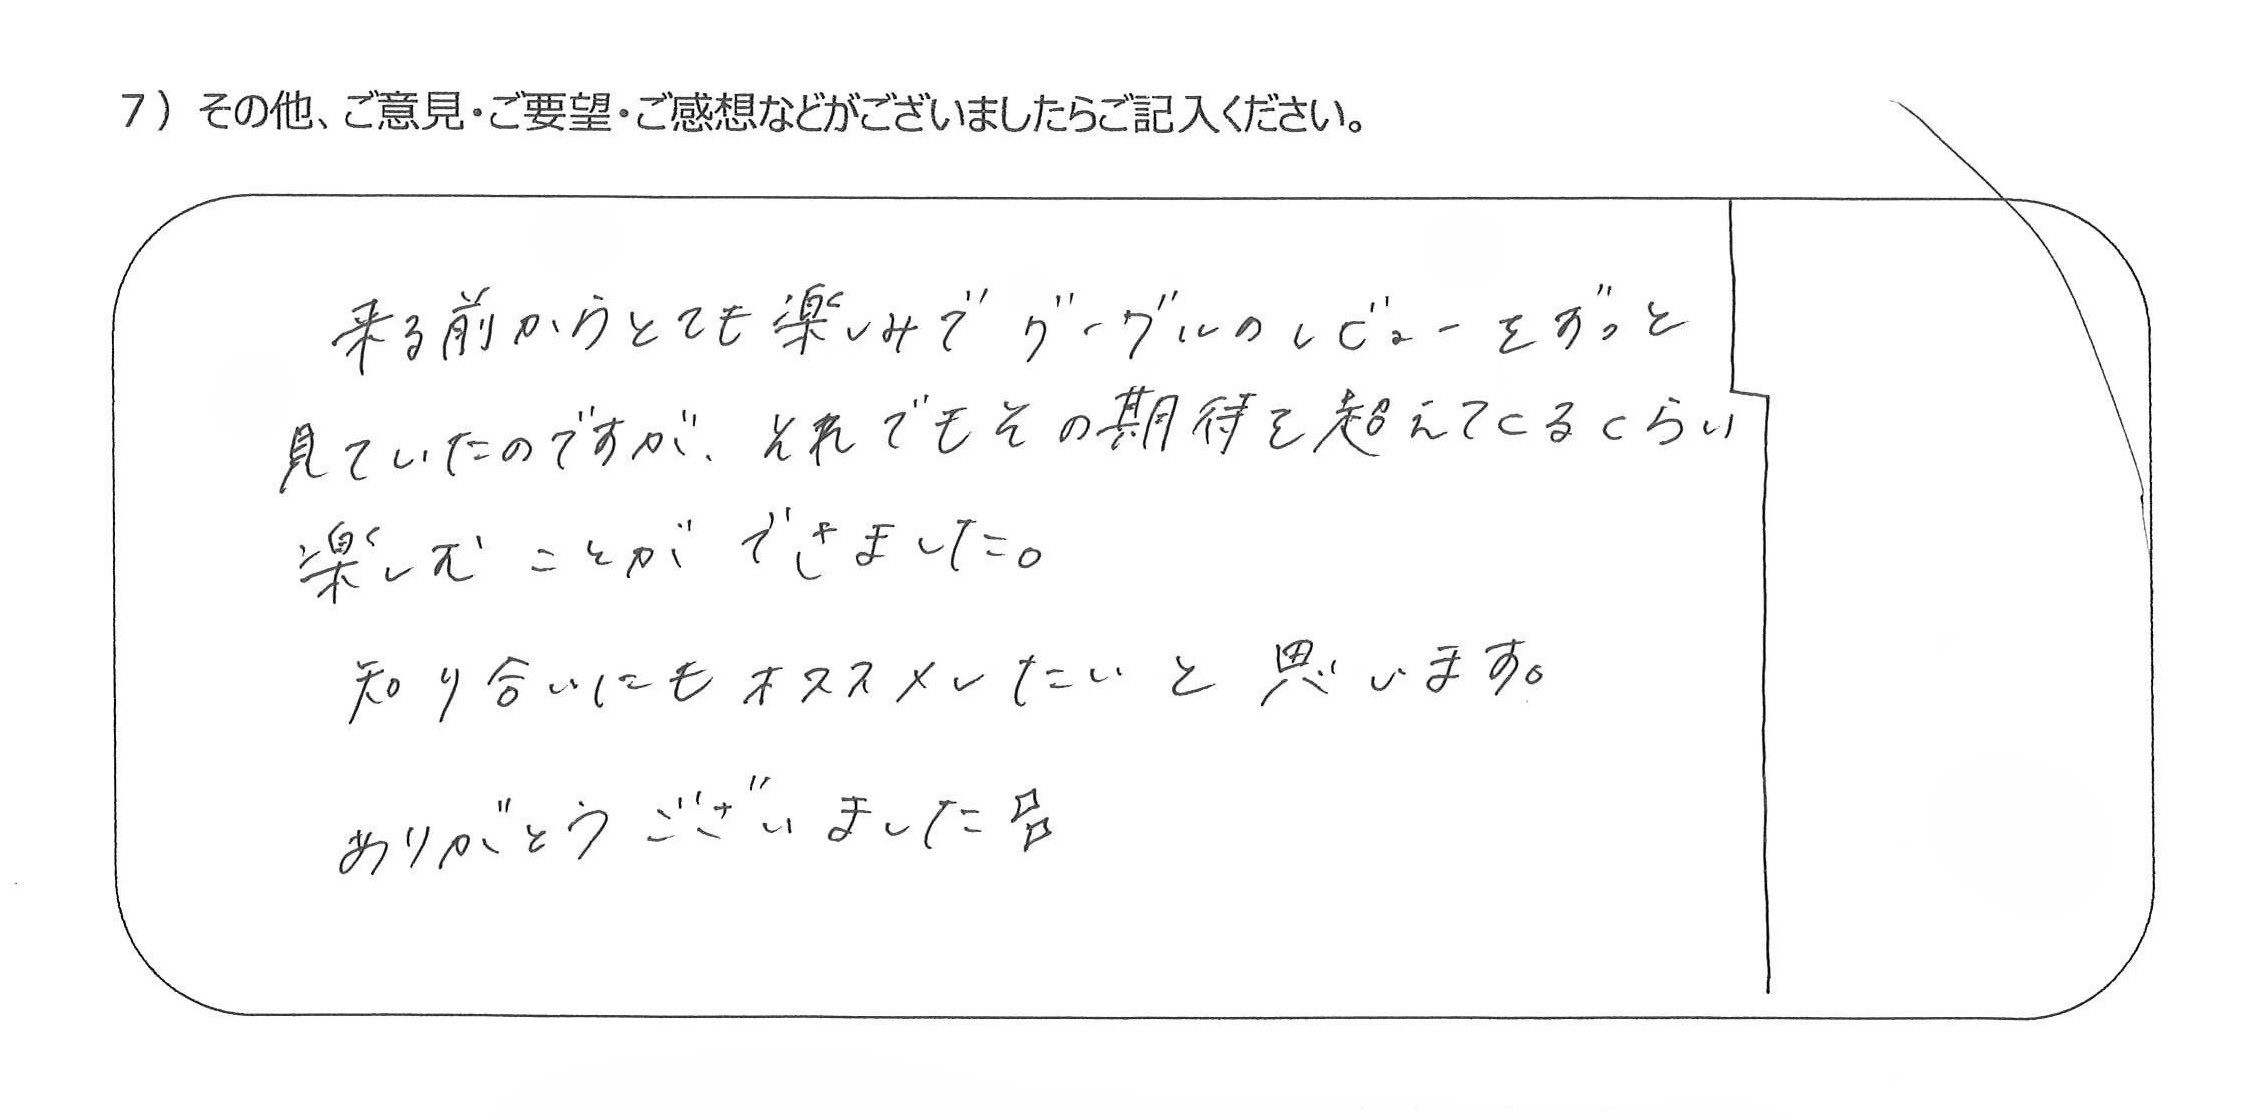 7）その他、ご意見・ご要望・ご感想などがございましたらご記入ください。
来る前からとても楽しみでグーグルのレビューをずっと
見ていたのですが、それでもその期待を超えてくるくらい
楽しむことができました。
知り合いにもオススメしたいと思います。
ありがとうございました